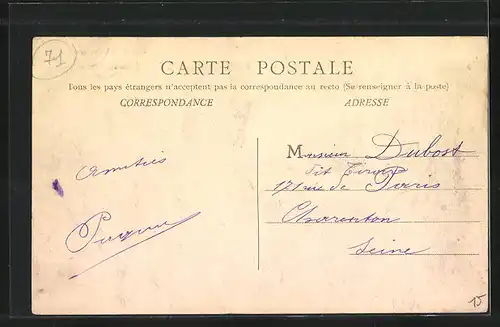 71
CARTE POSTALE
Tous les pays étrangers n'acceptent pas la correspondance au recto (Se renseigner à la poste)
CORRESPONDANCE
ADRESSE
Amitiés
Monsieur Dubost
dit
171 rue de Paris
Charenton
Seine
15